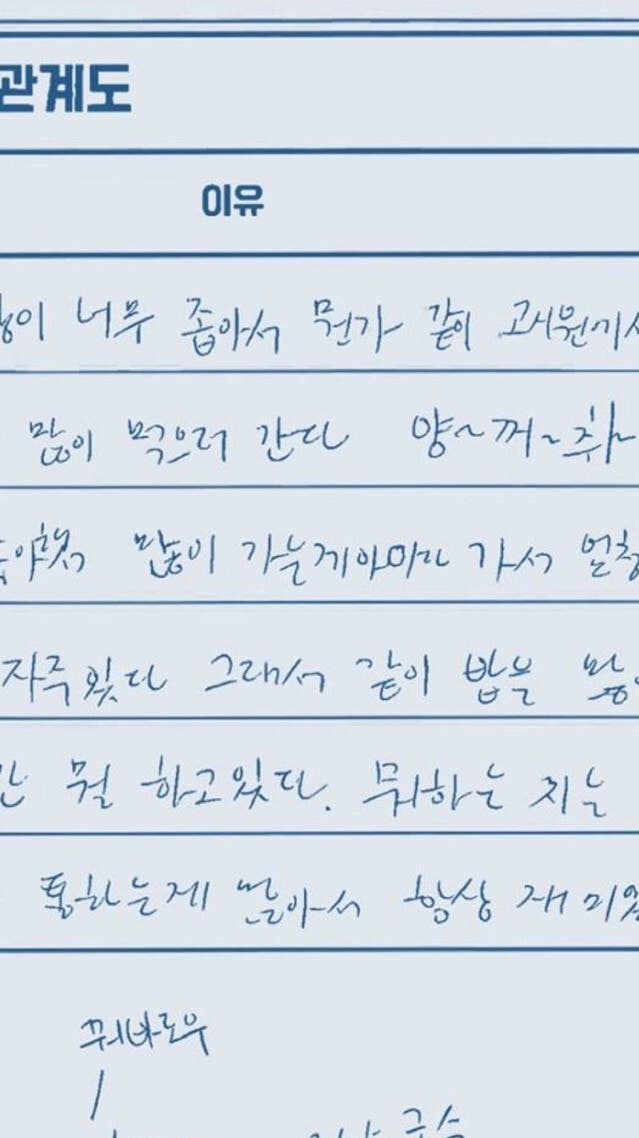 관계도
이유
너무 좁아서 뭔가 같이 고시원에서
많이 먹으러 간다 양~꺼~취~
많이 가는게아마 가서
자주있다 그래서 같이 밥을
뭘 하고있다. 뭐하는 지는
통하는게 많아서 항상 재미있
꿔바로우